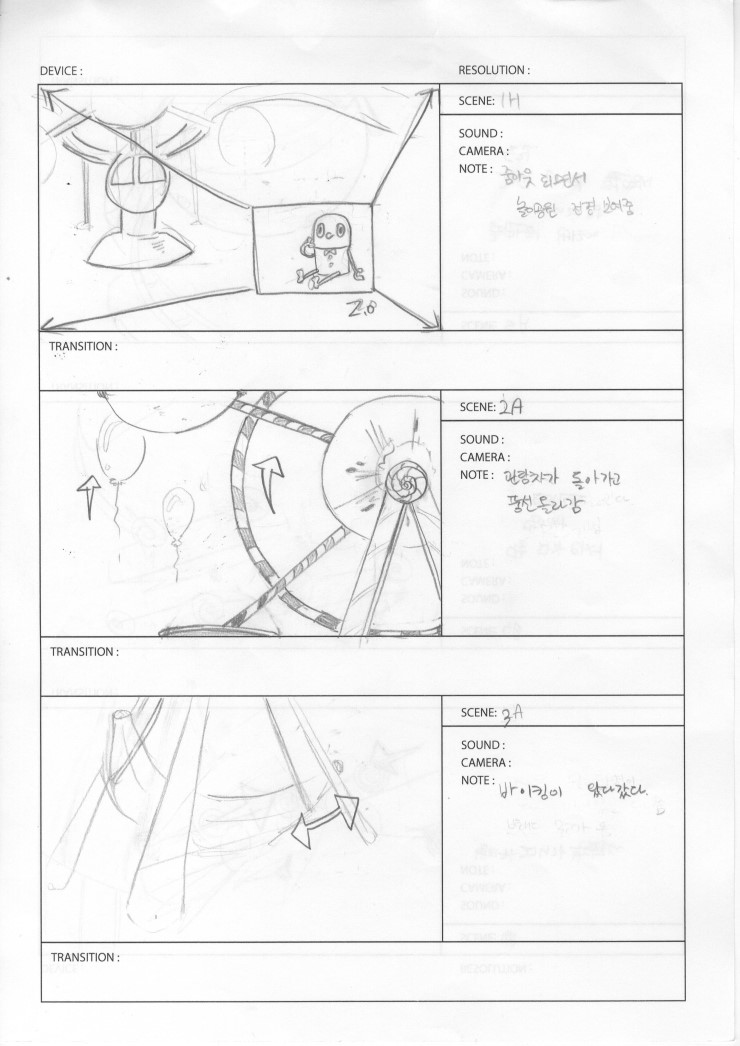 DEVICE :
RESOLUTION :
SCENE: 1H
SOUND :
CAMERA :
NOTE : 줌아웃 되면서
놀이공원 전경 보여줌
Z.O
TRANSITION :
SCENE: 2A
SOUND :
CAMERA :
NOTE : 관람차가 돌아가고
풍선 올라감
TRANSITION :
SCENE: 3A
SOUND :
CAMERA :
NOTE : 바이킹이 왔다갔다.
TRANSITION :